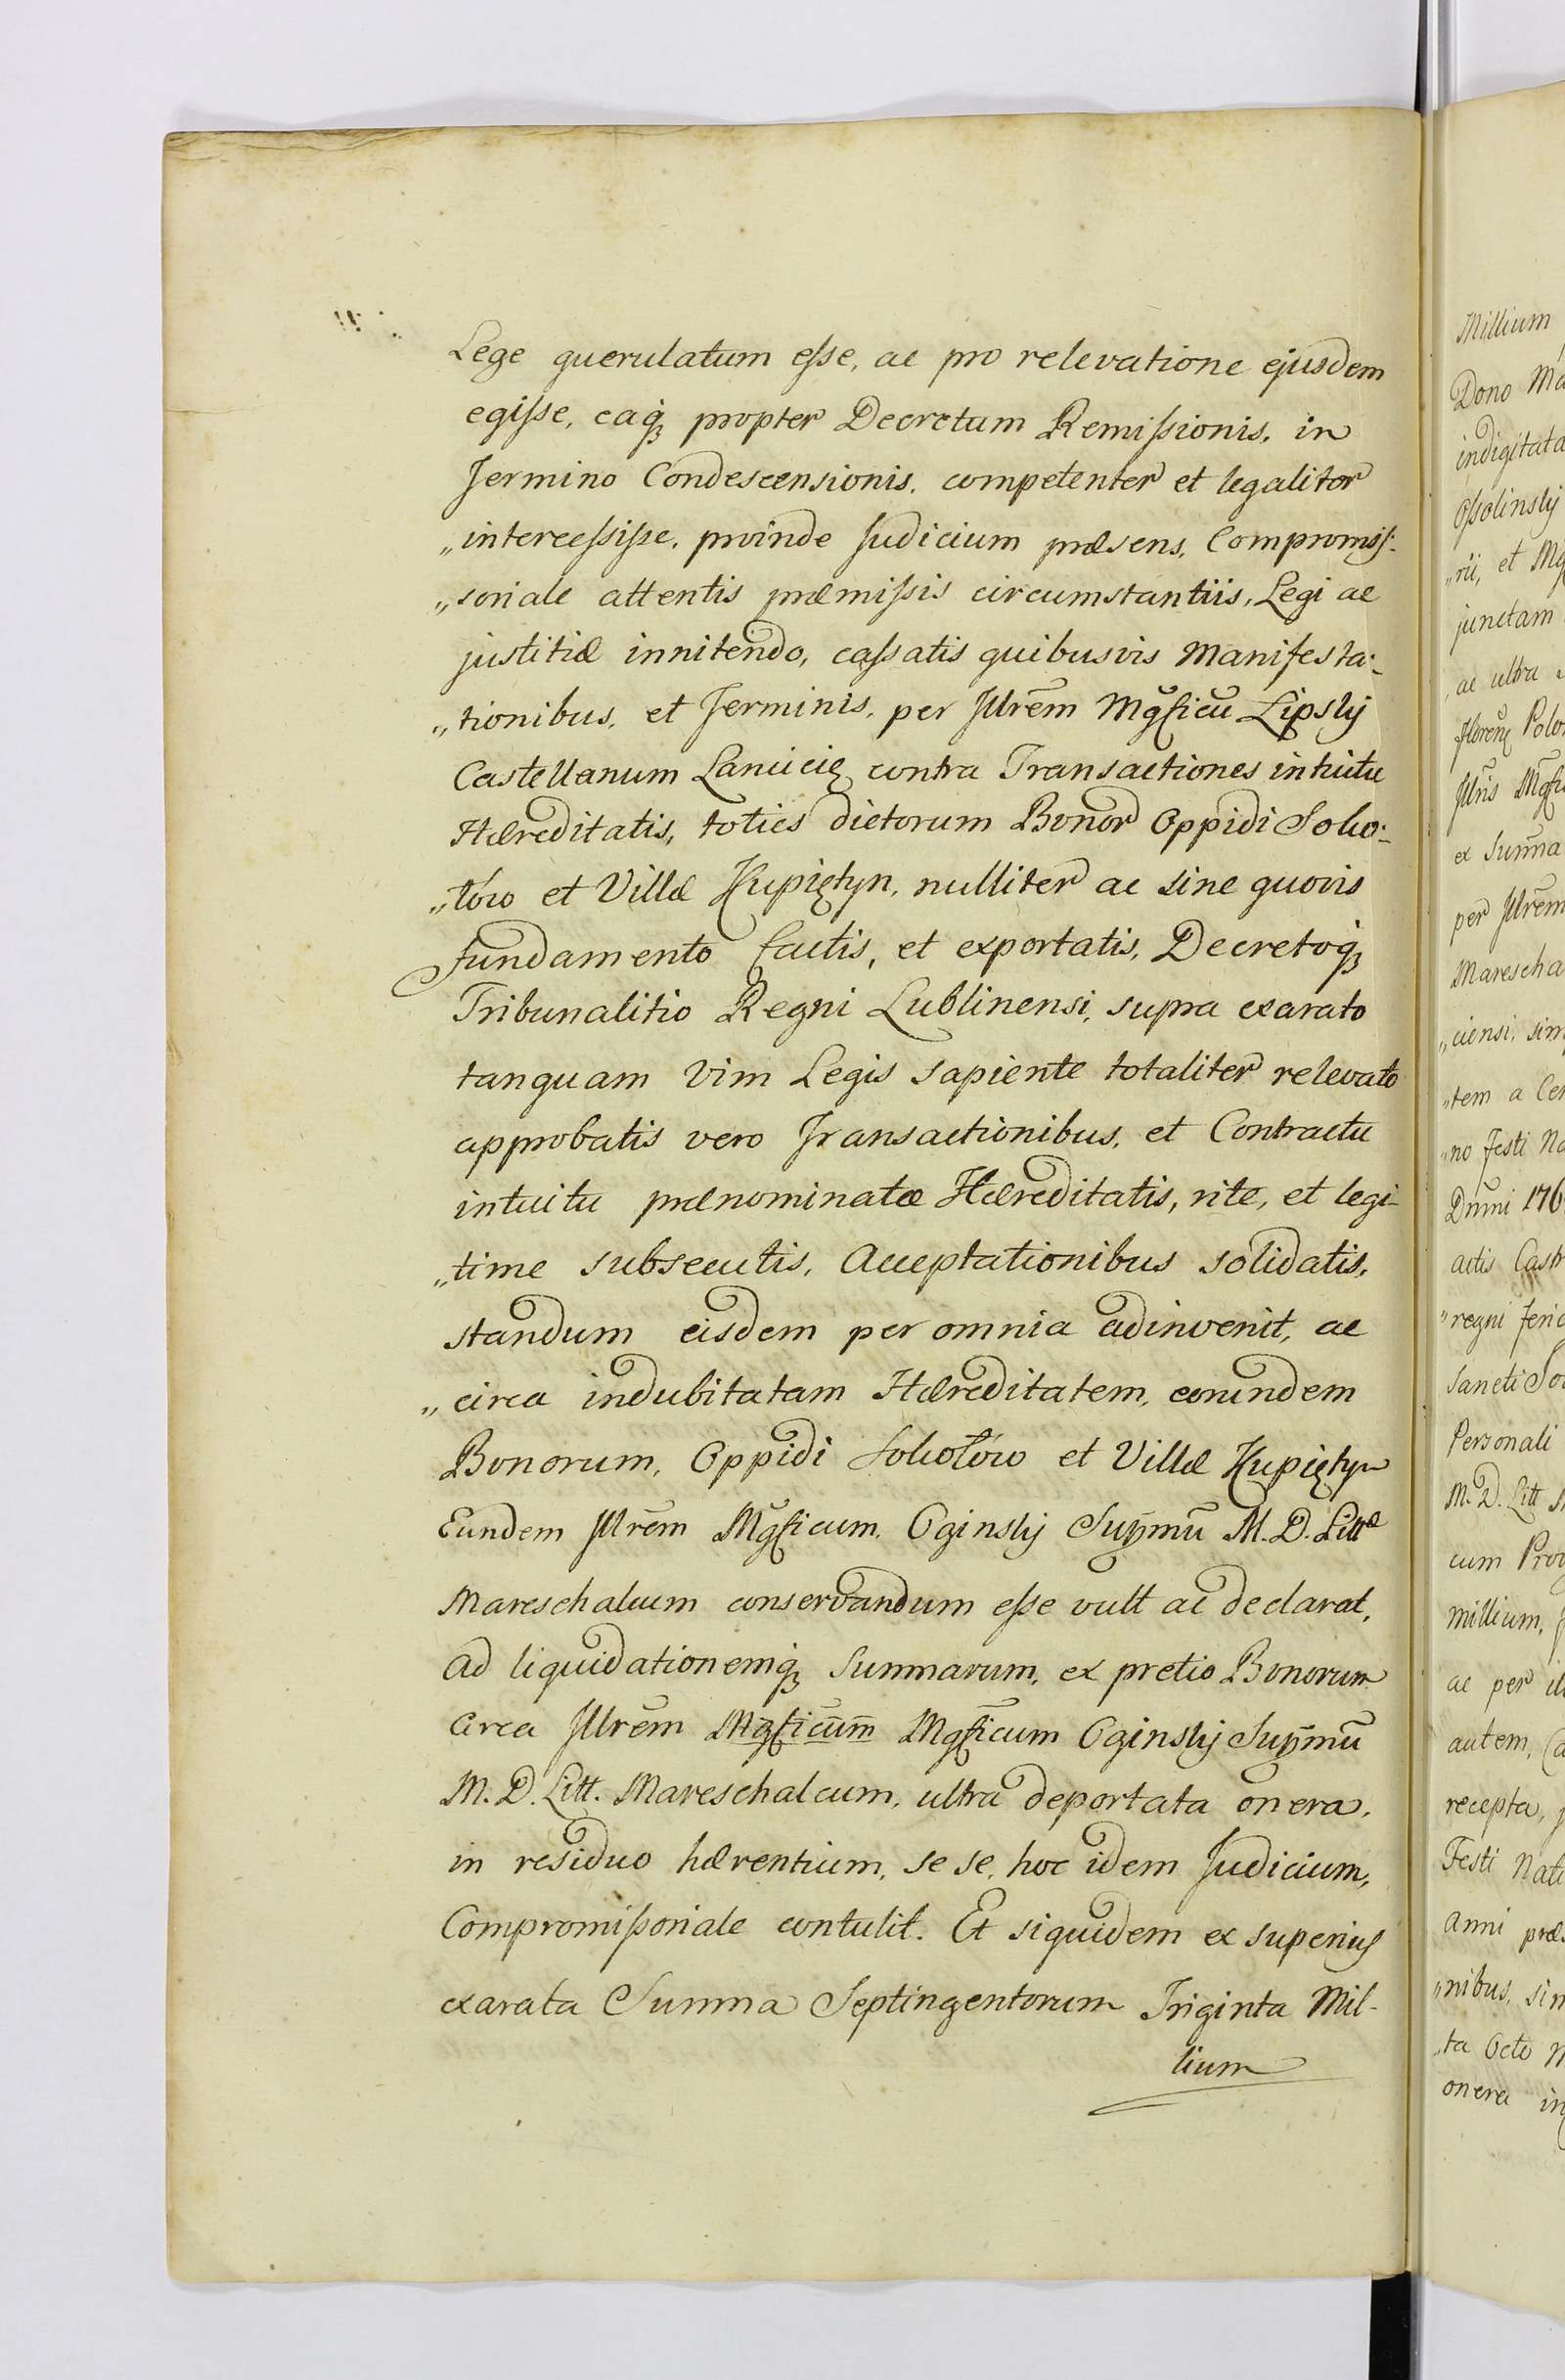 Lege querulatum eſse, ac pro relevatione ejusdem
egiſse, eaq̃ propter Decretum Remiſsionis, in
Termino Condescensionis, competenter et legaliter
„interceſsiſse, proinde Judicium præsens, Compromiſ-
„soriale attentis præmiſsis circumstantiis, Legi ac
justitiæ innitendo, caſsatis quibusvis Manifesta-
„tionibus, et Terminis, per Jllrẽm Mgficũ Lipskj
Castellanum Lancicię contra Transactiones intuitu
Hæreditatis, toties dictorum Bonor Oppidi Soko-
„łów et Villæ Kupiętyn, nulliter ac sine quovis
fundamento factis, et exportatis, Decretoq̃
Tribunalitio Regni Lublinensi, supra exarato
tanquam vim Legis sapiente totaliter relevato
approbatis vero Transactionibus, et Contractu
intuitu prænominatæ Hæreditatis, rite, et legi-
„time subsecutis, Acceptationibus solidatis,
standum eisdem per omnia adinvenit, ac
„circa indubitatam Hæreditatem, eorundem
Bonorum, Oppidi Sokołów et Villæ Kupiętyn
Eundem Jllrẽm Mgficum, Oginskj Supmũ M. D. Littæ
Mareschalcum conservandum eſse vult ac declarat,
Ad liquidationemq̃ Summarum, ex pretio Bonorum
Circa Jllrẽm Mgficum Mgficum Oginskj Supmũ
M. D. Litt. Mareschalcum, ultra deportata onera,
in residuo hærentium, se se, hoc idem Judicium,
Compromiſsoriale contulit. Et siquidem ex superius
exarata Summa Septingentorum Triginta Mil-
lium
Millium
Dono
indigitata
Oſsolinskj
„rii, et
junctam
ac ultra
Polo
ex Summa
per Jllrẽm
Marescha
„ciensi, sim
„tem a
„no Festi
Dnni 176
actis Cast
„regni
Sancti
Personali
M. D. Litt
cum
millium,
ac per
autem,
recepta,
Festi Nati
Anni
„nibus, sin
„ta Octo
onera in